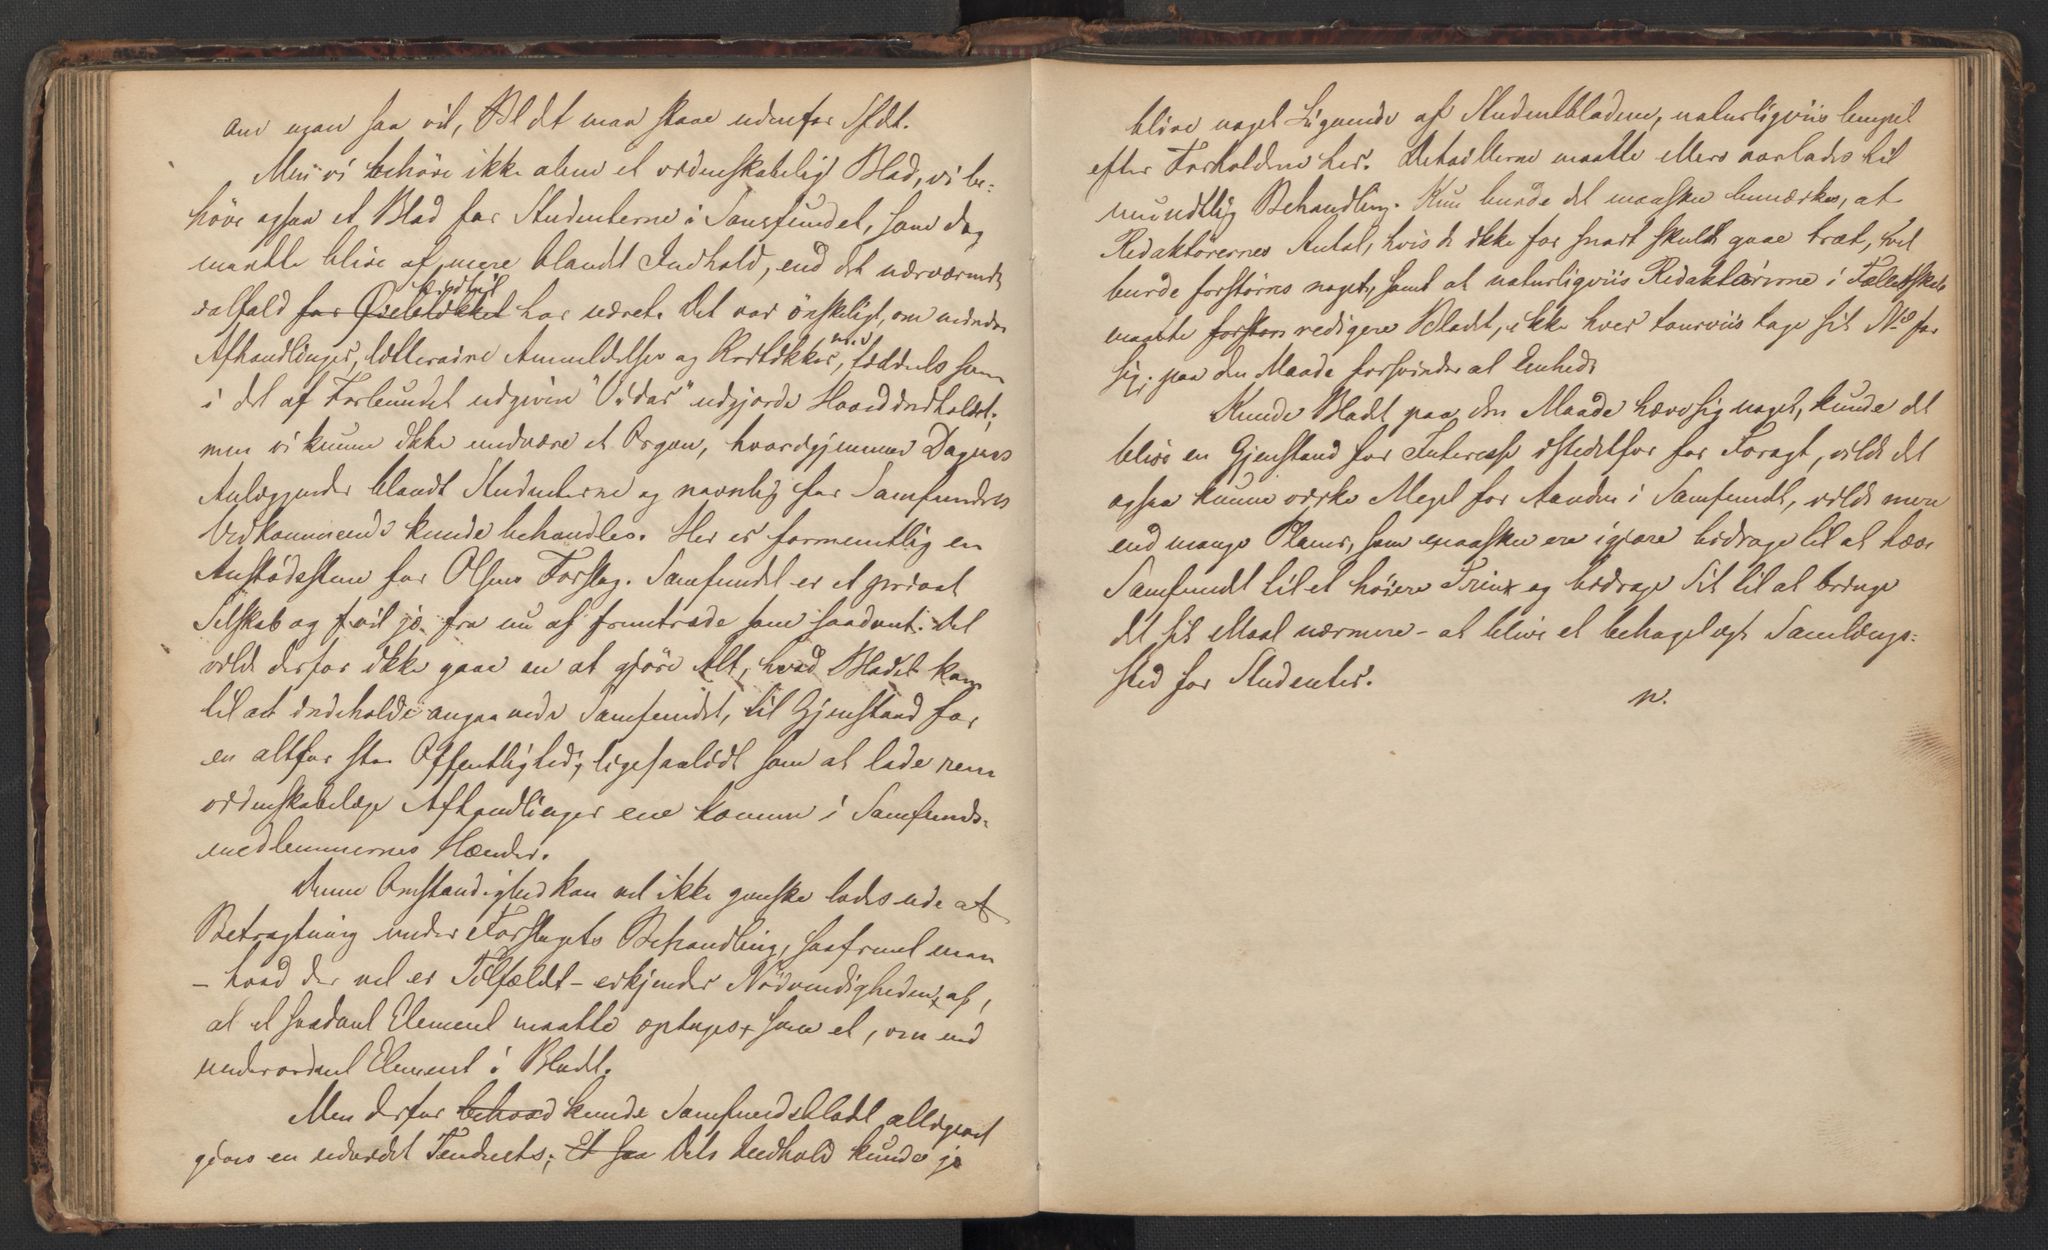 om man saa vil, Bl dt maa staae udenfor Sfdt.
Men vi behöve ikke alene et videnskabeligt Blad, vi be-
höve ogsaa et Blad for Studenterne i Samfundet, som dog
maatte blive af mere blandt Indhold, end det nærværende
ialfald for Øieblikket har været. Det var önskeligt, om mindre
Afhandlinger, litteraire Anmeldelser og Kritikker, tildeels som
i det af Forbundet udgivne "Vidar" udgjorde Hovedindholdet;
men vi kunne ikke undvære et Organ, hvorigjennem Dagens
Anliggender blandt Studenterne og navnlig for Samfundets
Vedkommende kunde behandles. Her er formentlig en
Anstödssten for Olsens Forslag. Samfundet er et privat
Selskab og vil jo fra nu af fremtræde som saadant. Det
vilde derfor ikke gaae an at gjöre Alt, hvad Bladet kom
til at indeholde angaaende Samfundet, til Gjenstand for
en altfor stor Offentlighed, ligesaalidt som at lade rene
videnskabelige Afhandlinger ene komme i Samfunds-
medlemmernes Hænder.
Denne Omstændighed kan vel ikke ganske lades ude af
Betragtning under Forslagets Behandling, saafremt man
- hvad der vel er Tilfældet - erkjender Nödvendigheden af,
at et saadant Element maatte optages som et, om end
underordnet Element i Bladt.
Men derfor behöved kunde Samfundsbladt alligevel
gives en udvidet Tendents; Et saa Dets Indhold kunde jo
blive noget Lignende af Studentbladene, naturligviis lempet
efter Forholdene her. Detaillerne maatte ellers overlades til
mundtlig Behandling. Kun burde det maaskee bemærkes, at
Redaktörernes Antal, hvis de ikke for snart skulde gaae træt, vel
burde forstörres noget, samt at naturligviis Redaktörerne i Fælledsskab
maatte forstan redigere Bladet, ikke hver tourviis tage sit No for
sig; paa den Maade forsvinder al Enhed.
Kunde Bladt paa den Maade hæve sig noget, kunde det
blive en Gjenstand for Interesse istedetfor for Foragt, vilde det
ogsaa kunne virke Meget for Aanden i Samfundt, vilde mere
end mange Planer, som maaskee ere igjære bidrage til at hæve
Samfundt til et höiere Trin og bidrage Sit til at bringe
det sit Maal nærmere - at blive et behageligt Samlings-
sted for Studenter.
n.